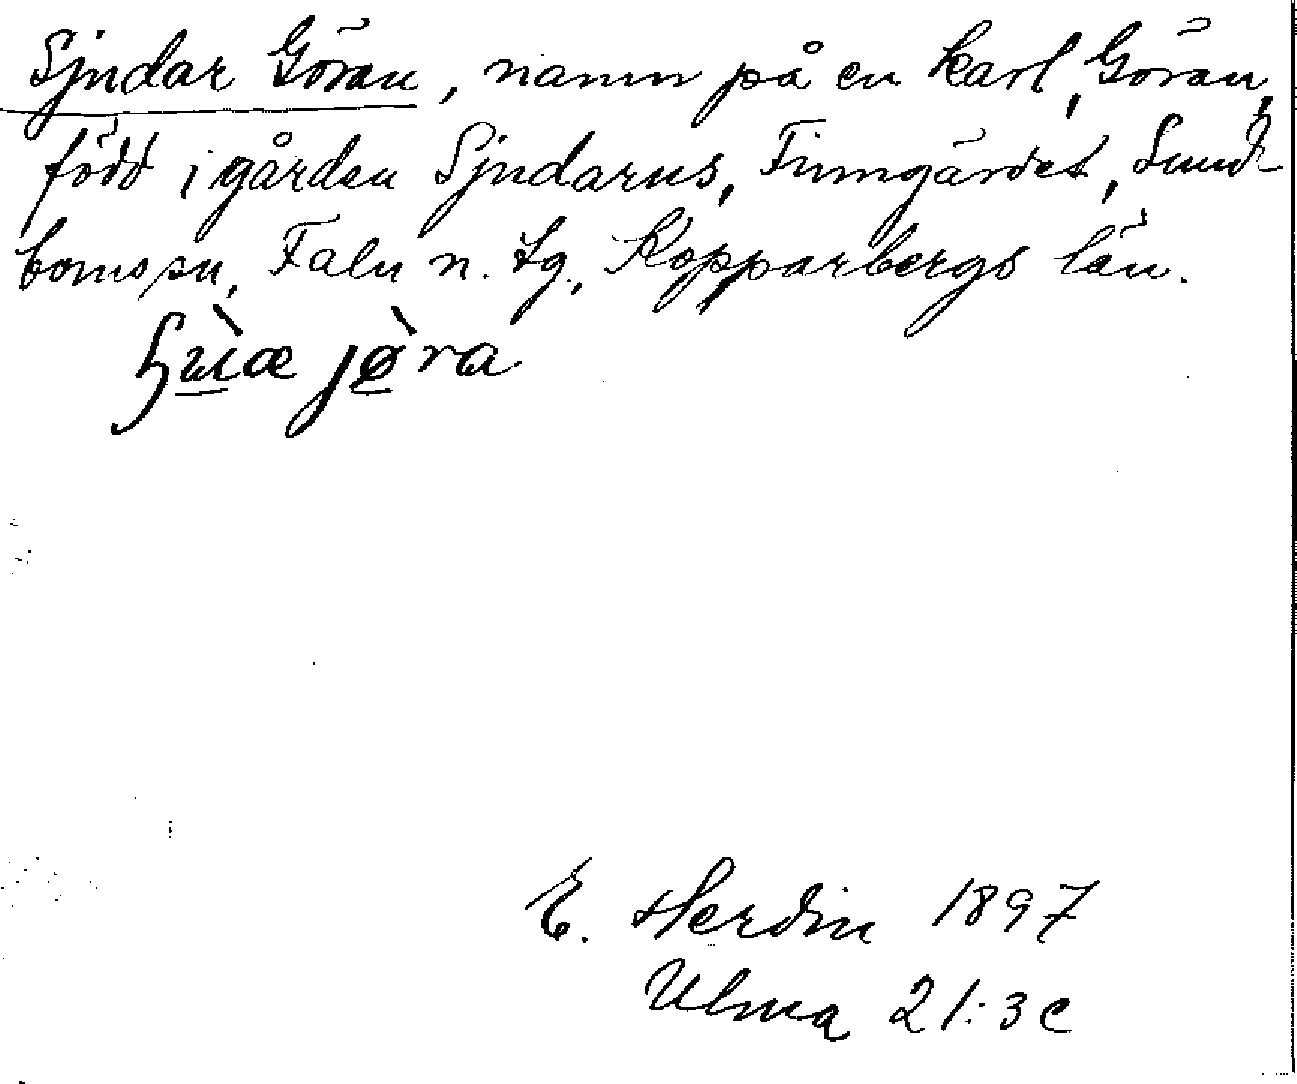 Sjndar Göran, namn på en karl, Göran,
född i gården Sjndarus, Finngärdet, Sund-
borns sn, Falu n. tg., Kopparbergs län.
jø̀ra
E. Herdin 1897
Ulma 21:3c